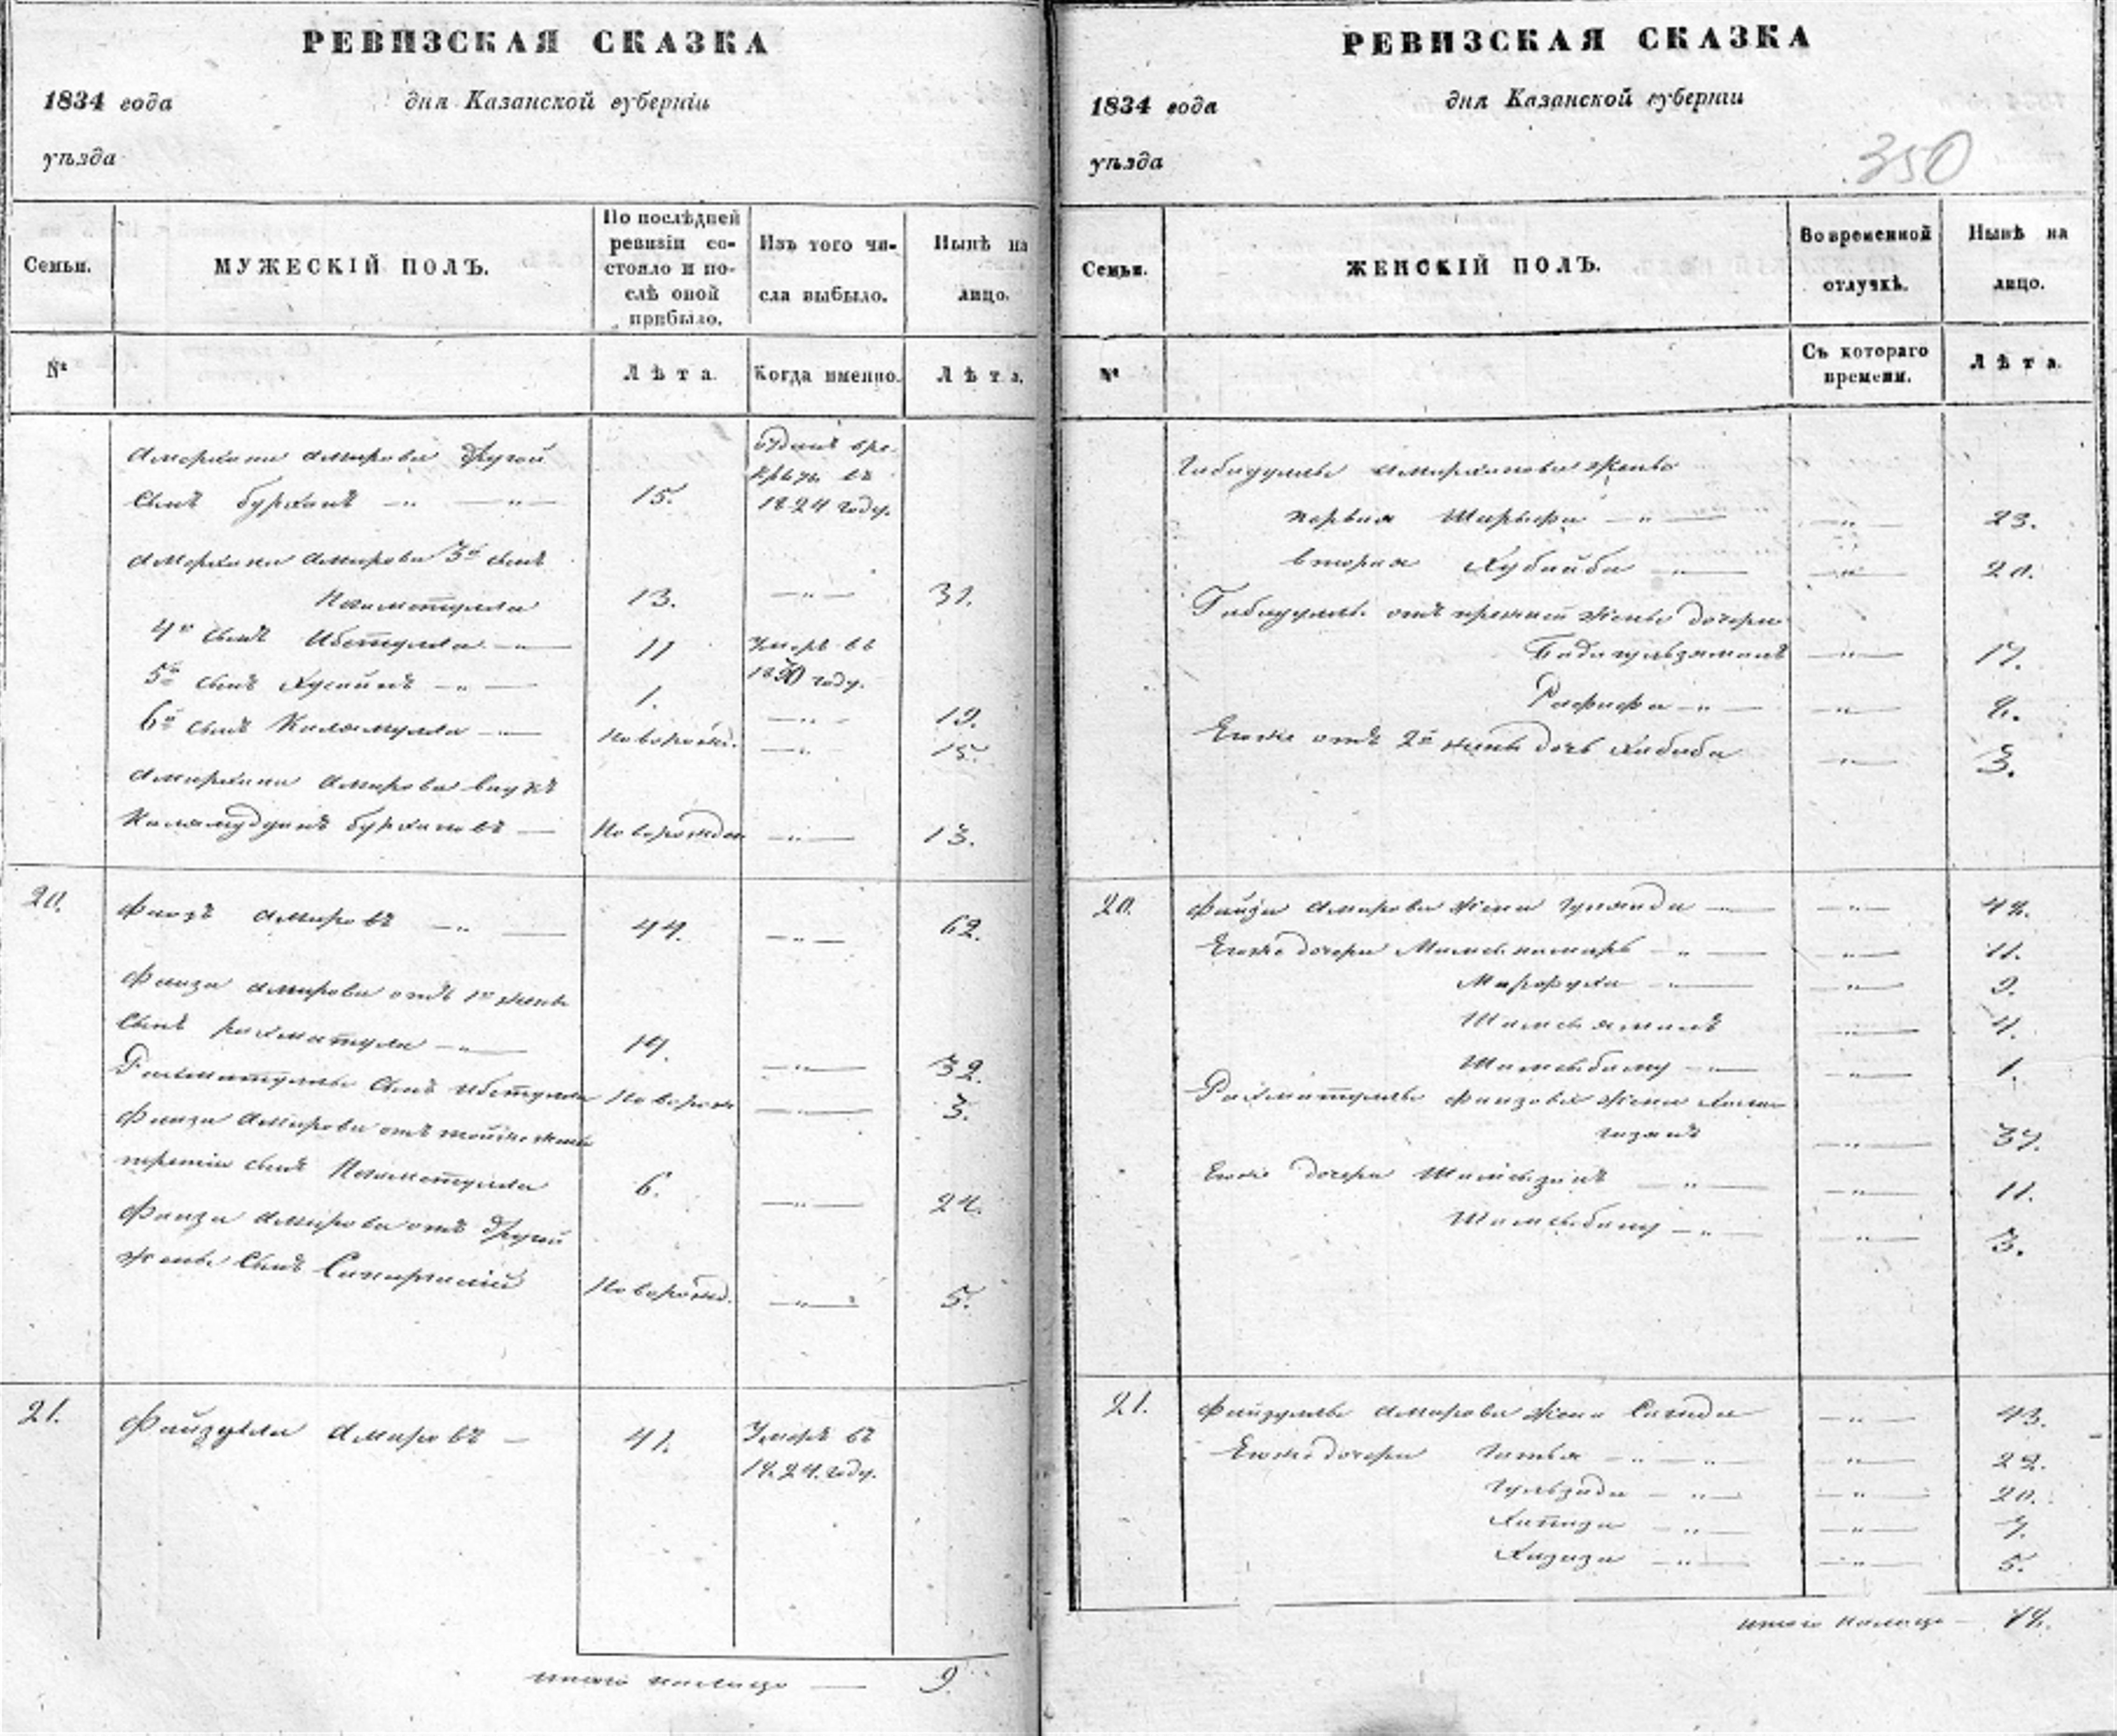 РЕВИЗСКАЯ СКАЗКА
1834 года дня Казанской губерніи
уѣзда
Семьи.
МУЖЕСКІЙ ПОЛЪ.
По послѣдней
ревизіи со-
стояло и по-
слѣ оной
прибыло.
Изъ того чи-
сла выбыло.
Нынѣ на
лицо.
№
Лѣта.
Когда именно.
Лѣта.
Амирхана Амирова другой
сынъ Бурханъ 15.
въ
1824 году.
Амирхана Амирова 3й сынъ
13. 31.
4й сынъ 11 Умеръ въ
1830 году.
5й сынъ Хусаинъ 1. 19.
6й сынъ Калямулла новорожд. 15.
Амирхана Амирова внукъ
Калямудинъ Бурхановъ новорожден 13.
20. Фаизъ Амировъ 44. 62.
Фаиза Амирова отъ 1й жены
сынъ Рахматулла 14. 32.
Рахматуллы сынъ новорож 3.
Фаиза Амирова отъ тойже жены
третий сынъ 6. 24.
Фаиза Амирова отъ другой
жены сынъ новорожд. 5.
21. Файзулла Амировъ 41. Умеръ въ
1824 году.
итого налицо 9.
РЕВИЗСКАЯ СКАЗКА
1834 года дня Казанской губерніи
уѣзда
350
Семьи.
ЖЕНСКІЙ ПОЛЪ.
Во временной
отлучкѣ.
Нынѣ на
лицо.
№
Съ котораго
времени.
Лѣта.
Габидуллы Амирханова жены
первая Шарыфа 23.
вторая Хубайба 20.
Габидуллы от прежней жены дочери
17.
Рафифа 8.
Егоже отъ 2й жены дочь Хабиба 3.
20. Файзы Амирова жена 48.
Егоже дочери 11.
Марфуха 9.
4.
Шамсыбану 1.
Рахматуллы Фаизова жена
37.
Егоже дочери 11.
Шамсыбану 3.
21. Файзуллы Амирова жена Сагида 43.
Егоже дочери 22.
Гульзада 20.
7.
Хазиза 5.
итого налицо 18.